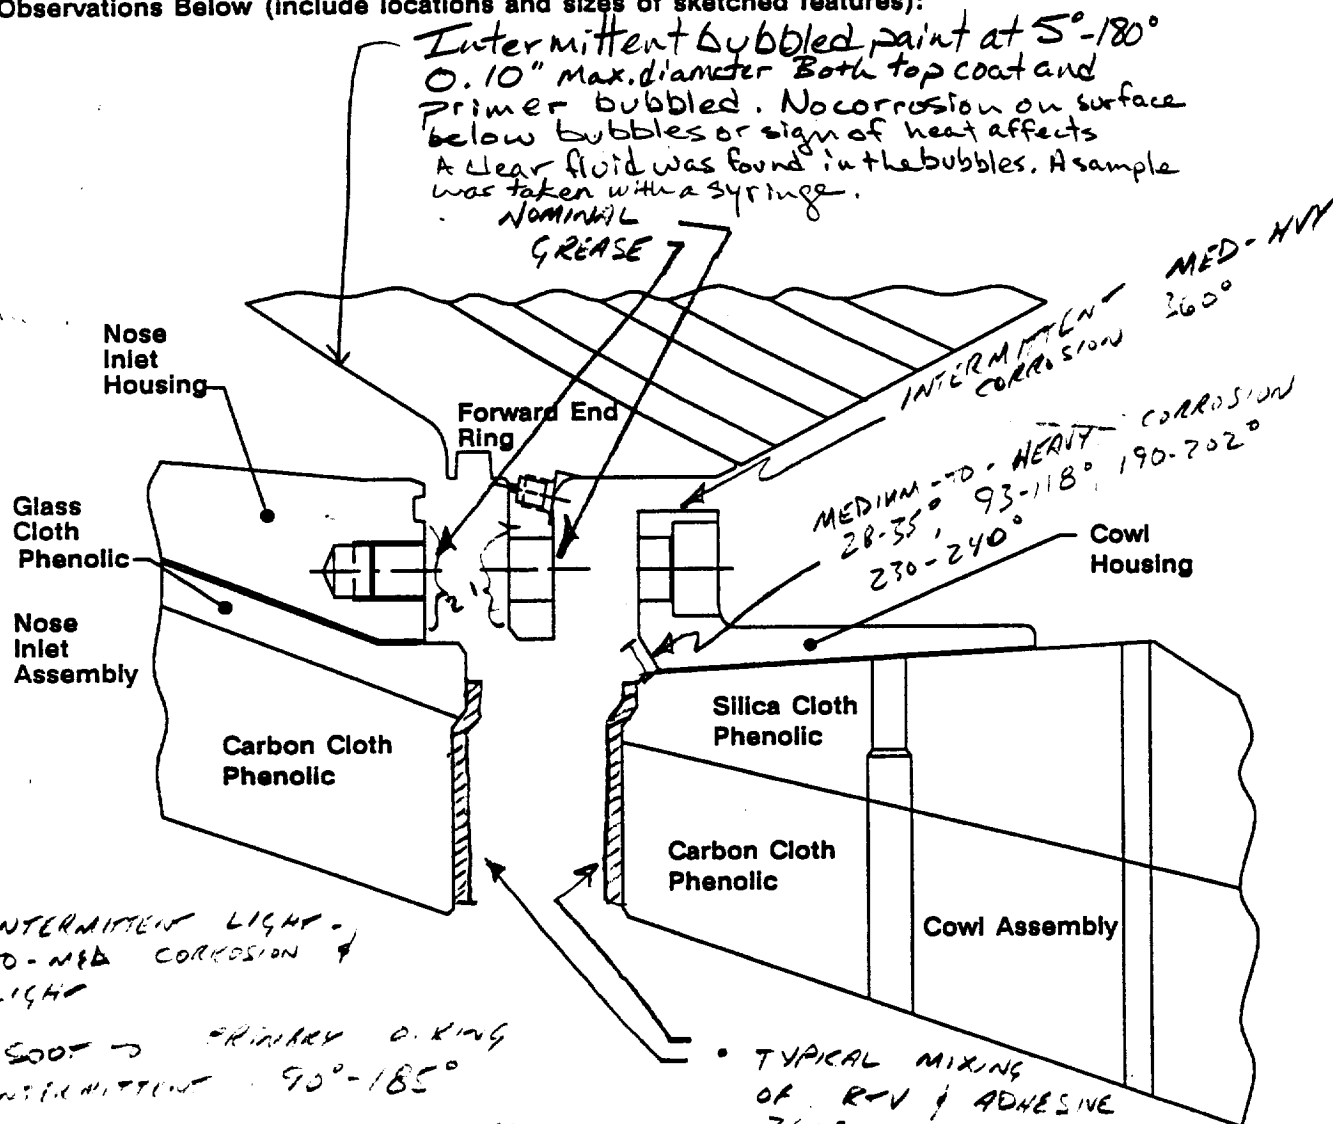 Observations Below (include locations and sizes of sketched features):
Intermittent bubbled paint at 5°-180°
0.10" Max. diameter Both top coat and
primer bubbled. No corrosion on surface
below bubbles or sign of heat affects
A clear fluid was found in the bubbles. A sample
was taken with a syringe.
NOMINAL
GREASE
MED-HVY
INTERMITTENT
CORROSION 360°
MEDIUM-TO-HEAVY CORROSION
28-35°, 93-118°, 190-202°
230-240°
Nose
Inlet
Housing
Forward End
Ring
Glass
Cloth
Phenolic
Cowl
Housing
Nose
Inlet
Assembly
Silica Cloth
Phenolic
Carbon Cloth
Phenolic
Carbon Cloth
Phenolic
Cowl Assembly
INTERMITTENT LIGHT-
TO-MED CORROSION &
LIGHT
SOOT → PRIMARY O-RING
INTERMITTENT 90°-185°
• TYPICAL MIXING
OF RTV & ADHESIVE